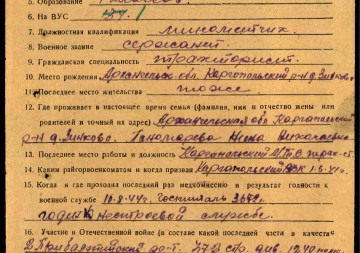 5. Образование
6. На ВУС 134.
7. Должностная квалификация минометчик
8. Военное звание сержант
9. Гражданская специальность тракторист
10. Место рождения Арханельск. обл. Каргопольский р-н д. Зинково
11. Последнее место жительства тоже
12. Где проживает в настоящее время семья (фамилия, имя и отчество жены или
родителей и точный их адрес) Архангельская обл Каргопольский
р-н д. Зинково. Пономарева Нина Михайловна
14. Последнее место работы и должность Каргопольская М.Т.С.
14. Каким райгорвоенкоматом и когда призван Каргопольский РВК 1.5.41г.
15. Когда и где проходил последний раз медкомиссию и результат годности к
военной службе 10.8.44г. Госпиталь
годен к нестроевой службе.
16. Участие в Отечественной войне (в составе какой последней части в качестве
2 Прибалтийский стр. див. 1240 полк